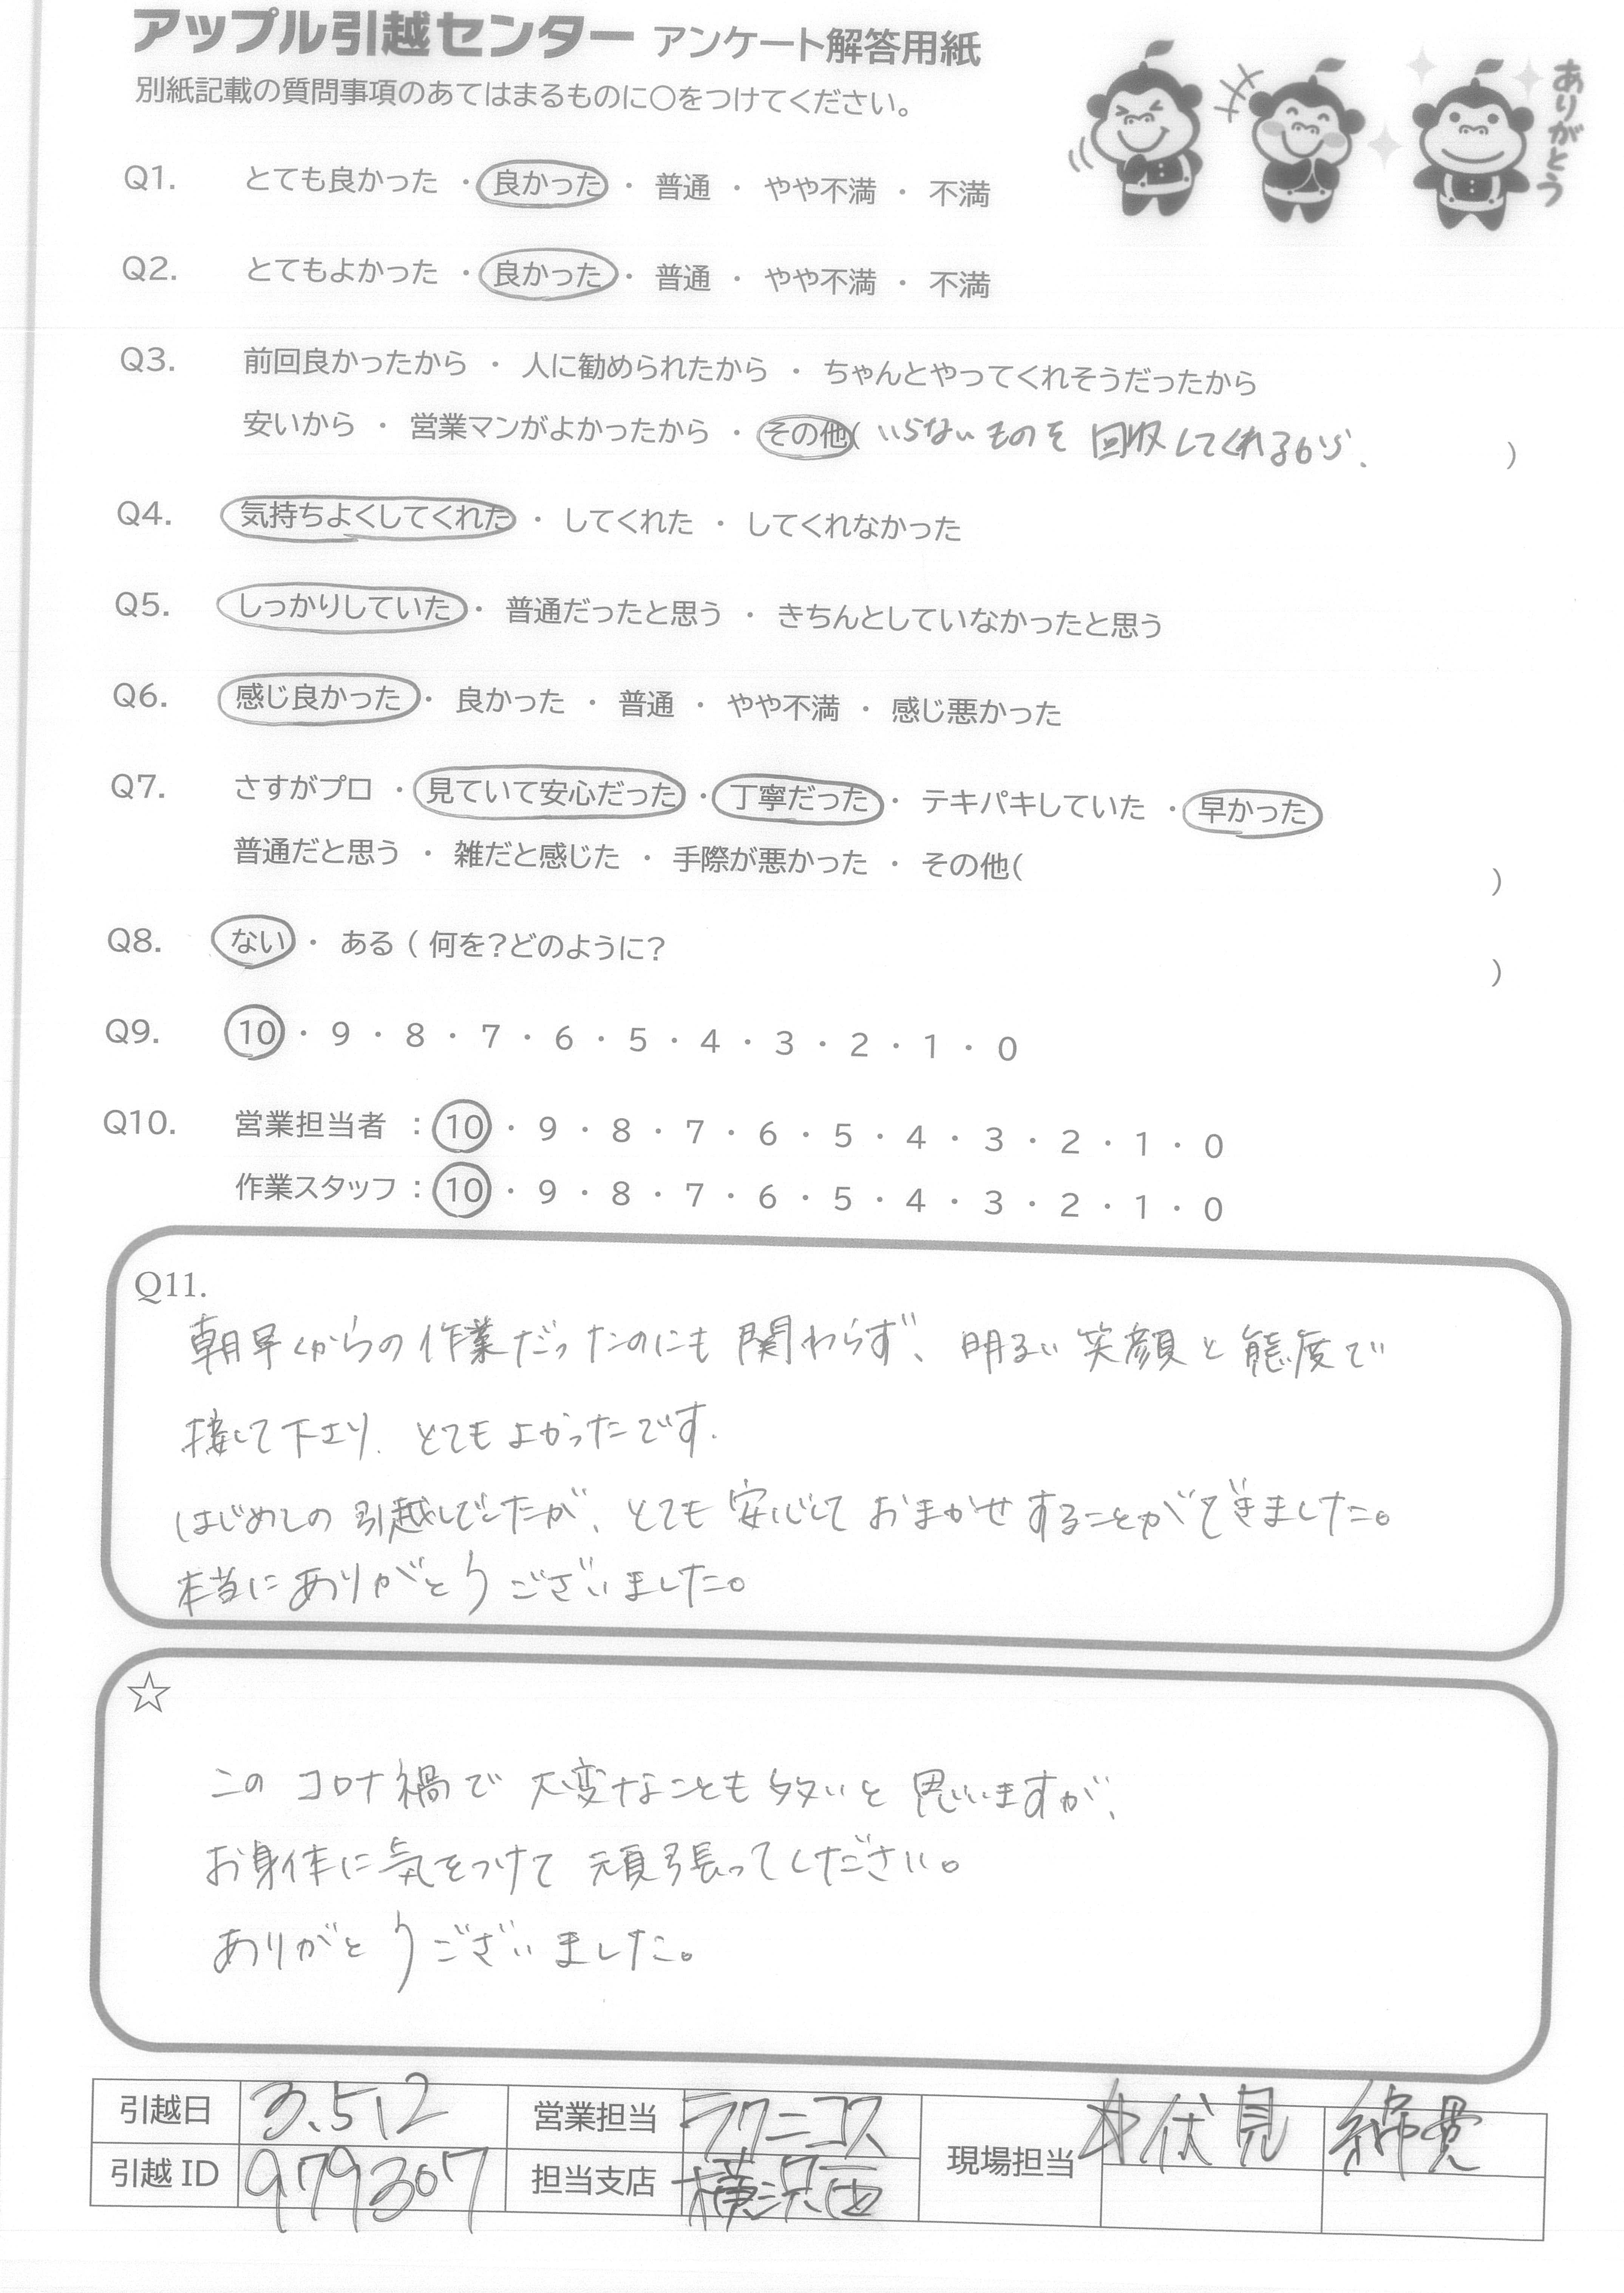 アップル引越センター アンケート解答用紙
別紙記載の質問事項のあてはまるものに〇をつけてください。
ありがとう
Q1. とても良かった ・ 良かった ・ 普通 ・ やや不満 ・ 不満
Q2. とてもよかった ・ 良かった ・ 普通 ・ やや不満 ・ 不満
Q3. 前回良かったから ・ 人に勧められたから ・ ちゃんとやってくれそうだったから
安いから ・ 営業マンがよかったから ・ その他( いらないものを 回収してくれるから. )
Q4. 気持ちよくしてくれた ・ してくれた ・ してくれなかった
Q5. しっかりしていた ・ 普通だったと思う ・ きちんとしていなかったと思う
Q6. 感じ良かった ・ 良かった ・ 普通 ・ やや不満 ・ 感じ悪かった
Q7. さすがプロ ・ 見ていて安心だった ・ 丁寧だった ・ テキパキしていた ・ 早かった
普通だと思う ・ 雑だと感じた ・ 手際が悪かった ・ その他( )
Q8. ない ・ ある ( 何を?どのように? )
Q9. 10 ・ 9 ・ 8 ・ 7 ・ 6 ・ 5 ・ 4 ・ 3 ・ 2 ・ 1 ・ 0
Q10. 営業担当者 : 10 ・ 9 ・ 8 ・ 7 ・ 6 ・ 5 ・ 4 ・ 3 ・ 2 ・ 1 ・ 0
作業スタッフ : 10 ・ 9 ・ 8 ・ 7 ・ 6 ・ 5 ・ 4 ・ 3 ・ 2 ・ 1 ・ 0
Q11.
朝早くからの作業だったのにも関わらず、明るい笑顔と態度で
接して下さり、とてもよかったです.
はじめての引越しでしたが、とても安心しておまかせすることができました。
本当にありがとうございました。
☆
このコロナ禍で大変なことも多いと思いますが、
お身体に気をつけて頑張ってください。
ありがとうございました。
引越日 3.512 営業担当 ラクニコス 現場担当 伏見 綿貫
引越 ID 979307 担当支店 横浜西